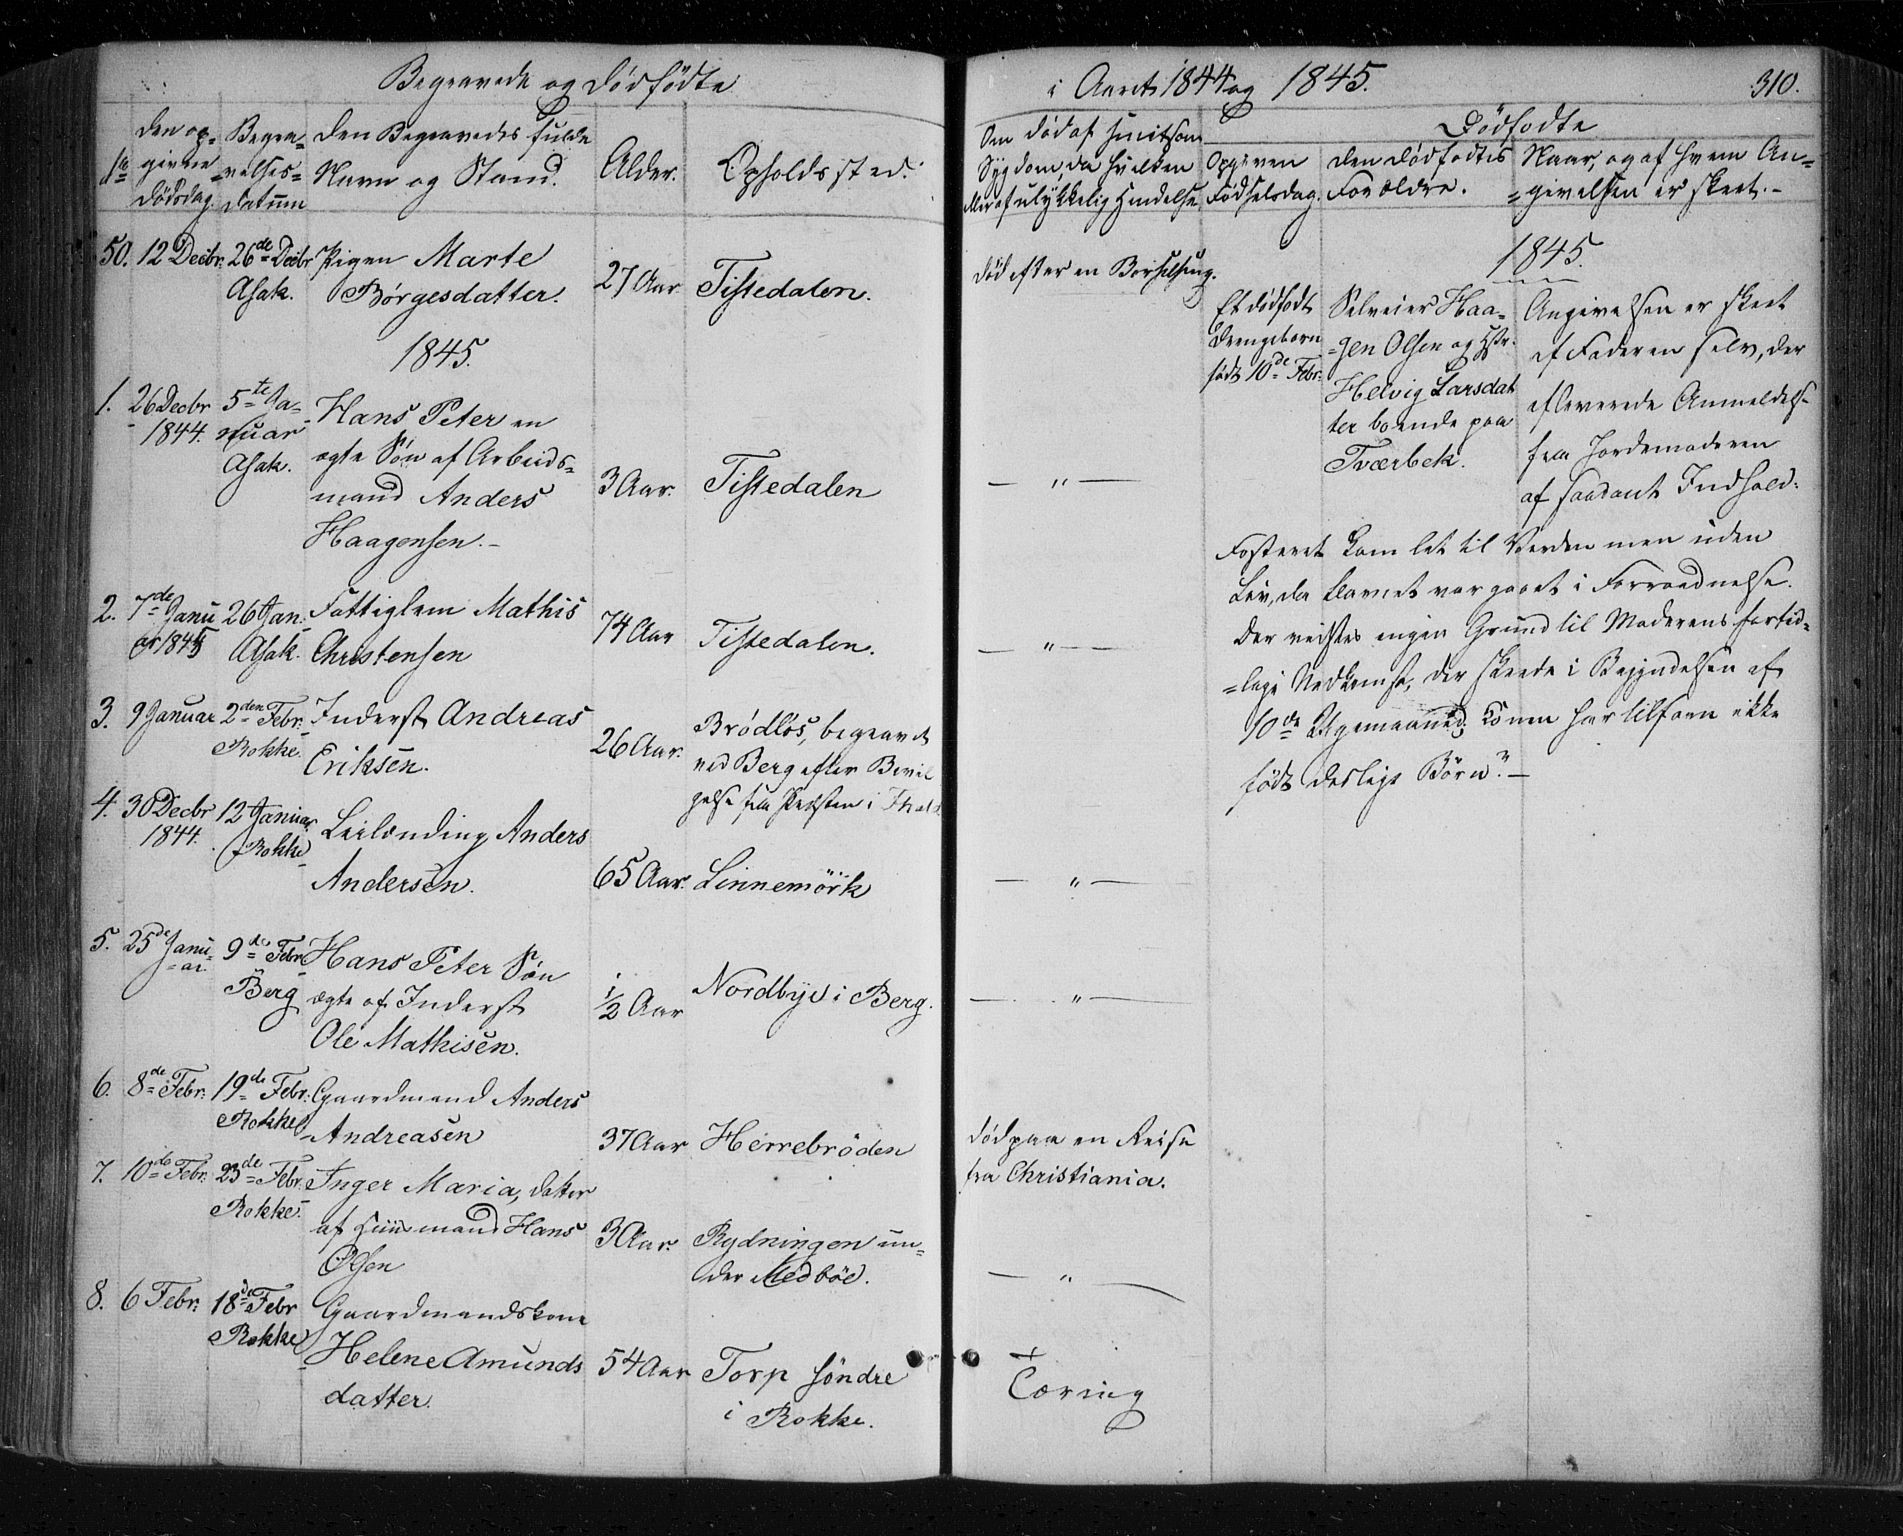 Begravede og Dödfödte
i Aaret 1844 og 1845.
310.
Den op-
givne
Dödsdag.
Begra-
velses-
Datum
Den Begravedes fulde
Navn og Stand.
Alder.
Opholdssted.
Om död af smitsom
Sygdom, da hvilken
eller af ulykkelig Hendelse
Dödfodte
Opgiven
Födselsdag.
Den Dödfodtes
Forældre.
Naar, og af hvem An-
givelsen er skeet.
50. 12 Decbr. 26de Decbr
Asak.
Pigen Marte
Börgesdatter.
27 Aar
Tistedalen.
Död efter en Barselseng.
1845.
1. 26 Decbr
1844.
5te Ja-
nuar
Asak.
Hans Peter en
ægte Sön af Arbeids-
mand Anders
Haagensen.
3 Aar.
Tistedalen
— " —
2. 7de Janu
ar 1845
26 Jan.
Asak.
Fattiglem Mathis
Christensen
74 Aar
Tistedalen.
— " —
3. 9 Januar
2den Febr.
Rokke.
Inderst Andreas
Eriksen.
26 Aar.
Brödlös, begravet
ved Berg efter Bevil
gelse fra Præsten i
4. 30 Decbr
1844.
12 Januar
Rokke
Leilænding Anders
Andersen.
65 Aar.
Linnemörk
— " —
5. 25de Janu-
ar.
9de Febr
Berg
Hans Peter Sön
ægte af Inderst
Ole Mathisen.
1/2 Aar
Nordbye i Berg.
— " —
6. 8de Febr.
19de Febr.
Rokke
Gaardmand Anders
Andreasen
37 Aar
Herrebröden
Död paa en Reise
fra Christiania.
7. 10de Febr.
23de Febr.
Rokke.
Inger Maria, Datter
af Huusmand Hans
Olsen
3 Aar.
Rydningen un-
der Medböe.
— " —
8. 6 Febr.
18de Febr
Rokke
Gaardmandskone
Helene Amunds
datter.
54 Aar
Torp söndre
i Rokke.
Tæring
1845.
Et dödfodt
Drengebarn
födt 10de Febr.
Selveier Haa-
gen Olsen og Hstr.
Helvig Larsdat
ter boende paa
Tværbek.
Angivelsen er skeet
af Faderen selv, der
afleverede Anmeldelse
fra Jordemoderen
af saadant Indhold:
Fosteret kom let til Verden men uden
Liv, da Barnet var gaaet i Forraadnelse.
Der vidstes ingen Grund til Moderens fortid-
lige Nedkomst, der skeede i Begyndelsen af
10de Ugemaaned; Konen har tilforn ikke
födt deslige Börn". —